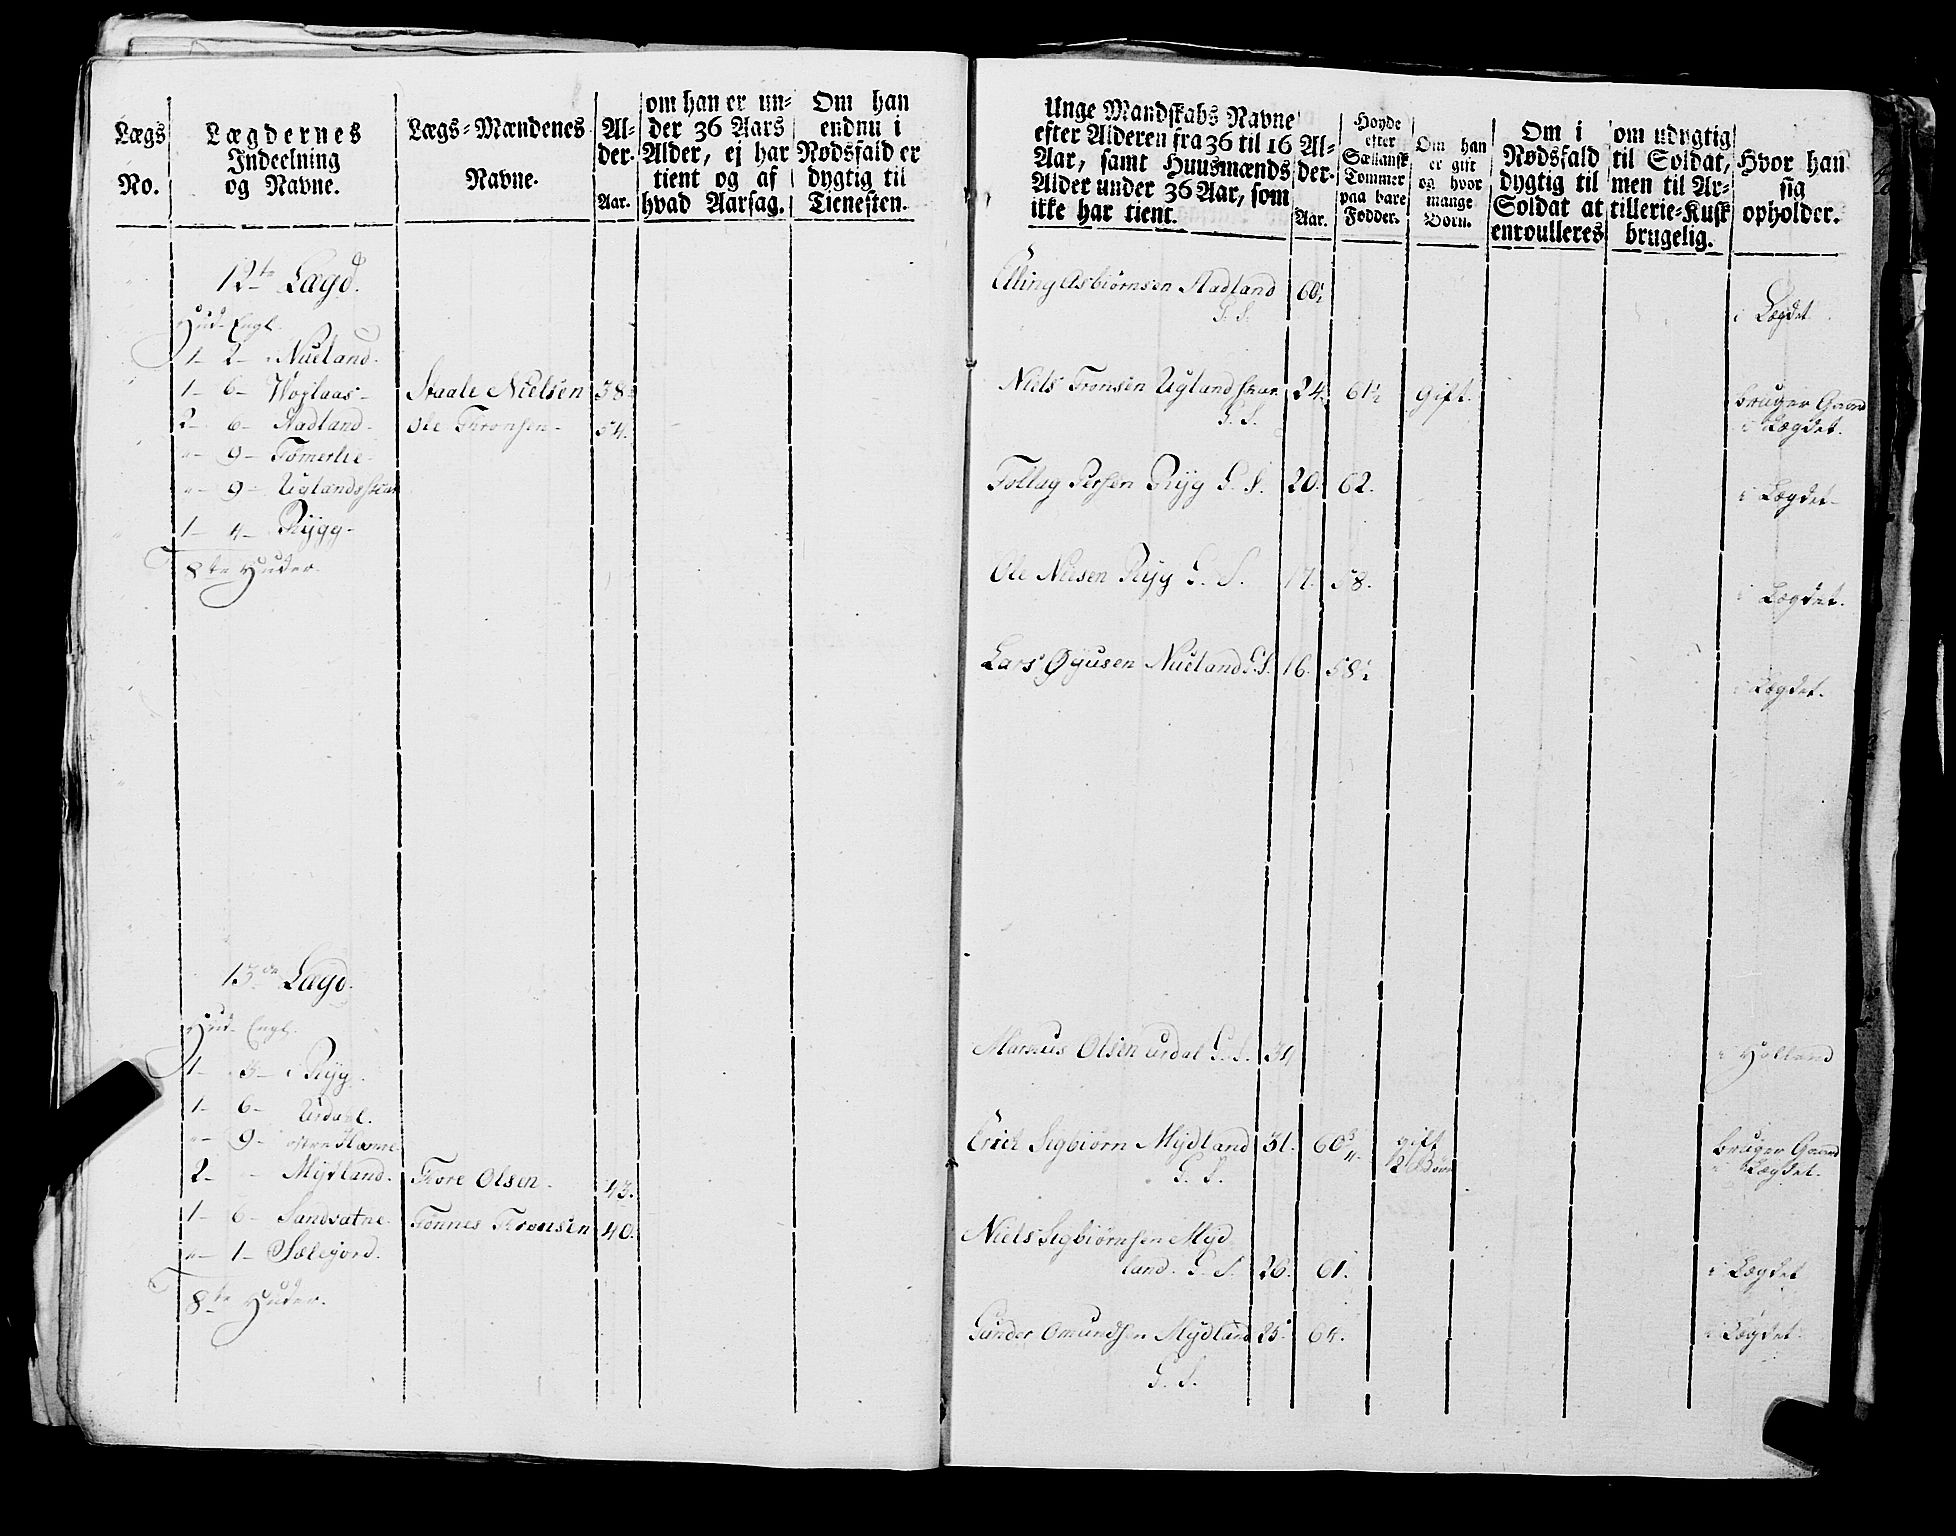 Lægs No.
Lægdernes Indeelning og Navne.
Lægs-Mændenes Navne.
Alder. Aar.
om han er under 36 Aars Alder, ej har tient og af hvad Aarsag.
Om han endnu i Nødsfald er dygtig til Tienesten.
12te Lægd.
Hud- Engl.
1- 2- Nueland-
1- 6- Staale Nielsen 38
2- 6- Stadland- Ole Thronsen- 54.
"- 9- Tømerlie-
"- 9- Uglandsskar
1- 4- Rygg-
8te Huder.
13de Lægd.
Hud- Engl.
1- 3- Ryg.
1- 6- Urdahl.
"- 9-
2- - Mydland. Thore Olsen- 43.
1- 6- Sandvatne Tønnes Thronsen 40.
"- 1- Sælegiord.
8te Huder.
Unge Mandskabs Navne efter Alderen fra 36 til 16 Aar, samt Huusmænds Alder under 36 Aar, som ikke har tient.
Alder. Aar.
Høyde efter Sællansk Tommer paa bare Fødder.
Om han er gift og hvor mange Børn.
Om i Nødsfald dygtig til Soldat at enroulleres
om udygtig til Soldat, men til Artillerie-Kusk brugelig.
Hvor han sig opholder.
Elling Asbiørnsen Stadland 60½
G. S. i Lægdet.
Niels Tronsen Uglandskar 24. 61½ gift. bruger Gaard
G. S. i Lægdet.
Tollag Persen Ryg G. S. 20. 62. i Lægdet-
Ole Nilsen Ryg G. S. 17. 58. i Lægdet.
Lars Øyusen Nueland G. S. 16. 58½ i Lægdet.
Markus Olsen Urdal G. S. 34 i Holland
Erich Sigbiørn Mydland 31. 60¾. gift bruger Gaard
G. S. 2 Børn i Lægdet.
Niels Sigbiørnsen Myd
land. G. S. 26. 61. i Lægdet
Gunder Omundsen Mydland 25. 64. i Lægdet.
G. S.